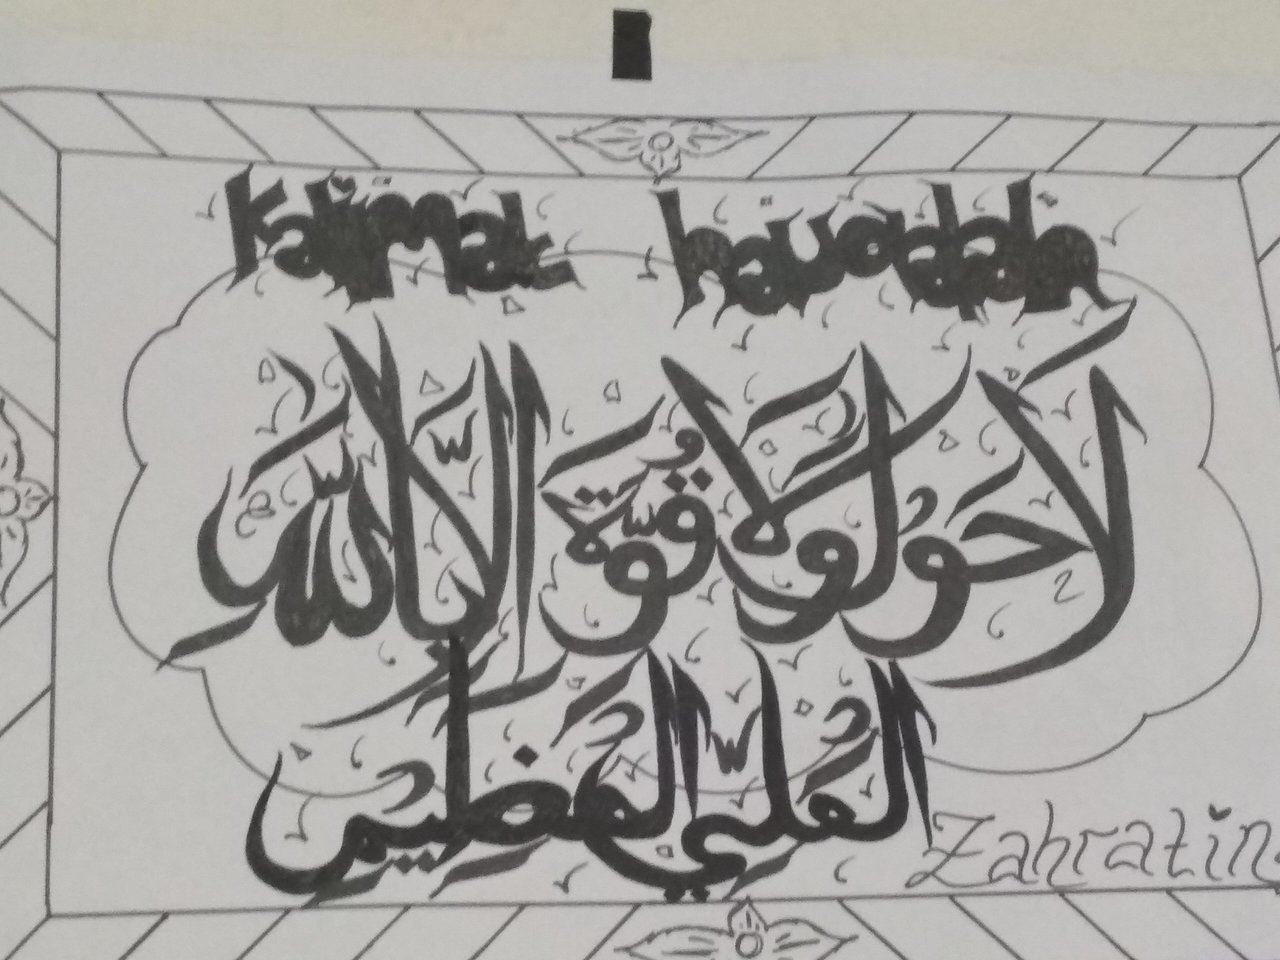 Kalimat hauqalah
لَا حَوْلَ وَلَا قُوَّةَ إِلَّا بِاللّٰهِ
الْعَلِيِّ الْعَظِيْمِ
Zahratin